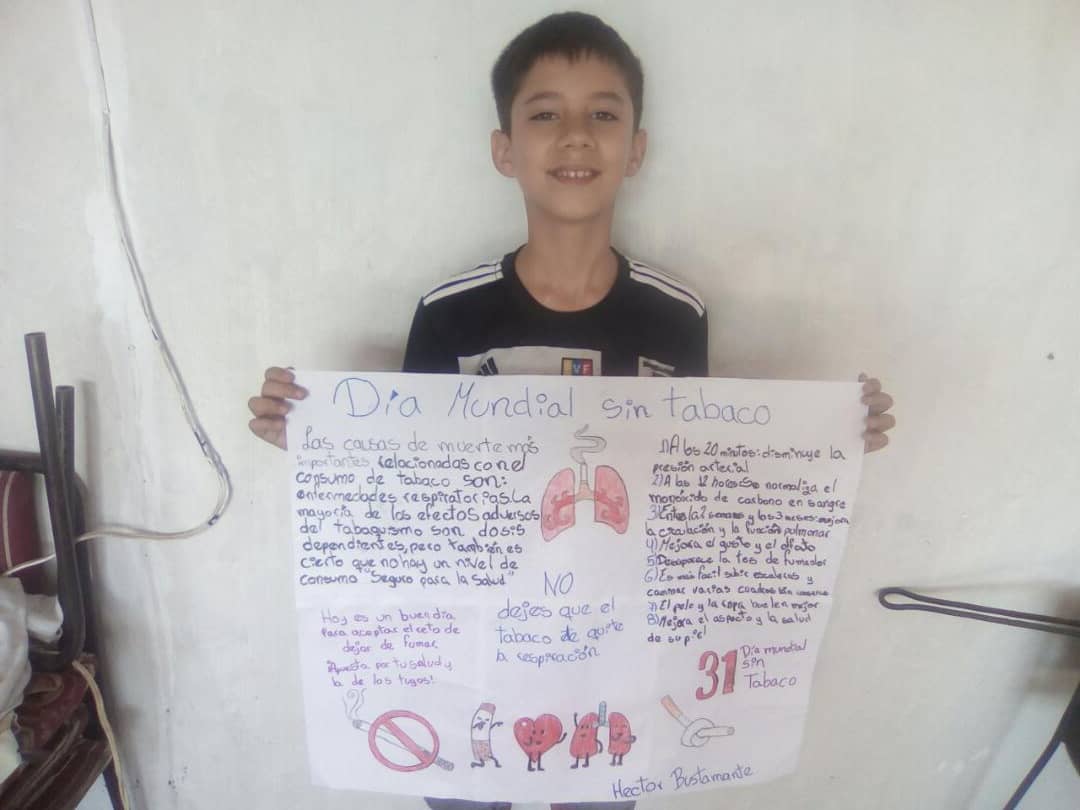 Día Mundial sin tabaco
Las causas de muerte más
importantes relacionadas con el
consumo de tabaco son:
enfermedades respiratorias. La
mayoría de los efectos adversos
del tabaquismo son dosis
dependientes, pero también es
cierto que no hay un nivel de
consumo "Seguro para la Salud"
1) A los 20 minutos: disminuye la
presión arterial
2) A las 12 horas: Se normaliza el
monóxido de carbono en sangre
3) Entre las 2 semanas y los 3 meses: mejora
la circulación y la función pulmonar
4) Mejora el gusto y el olfato
5) Desaparece la tos de fumador
6) Es más fácil subir escaleras y
caminar varias cuadras sin
7) El pelo y la ropa huelen mejor
8) Mejora el aspecto y la salud
de su piel
Hoy es un buen día
para aceptar el reto de
dejar de fumar.
¡Apuesta por tu salud y
la de los tuyos!
NO
dejes que el
tabaco te quite
la respiración
31 Día mundial
sin
Tabaco
Hector Bustamante
VF